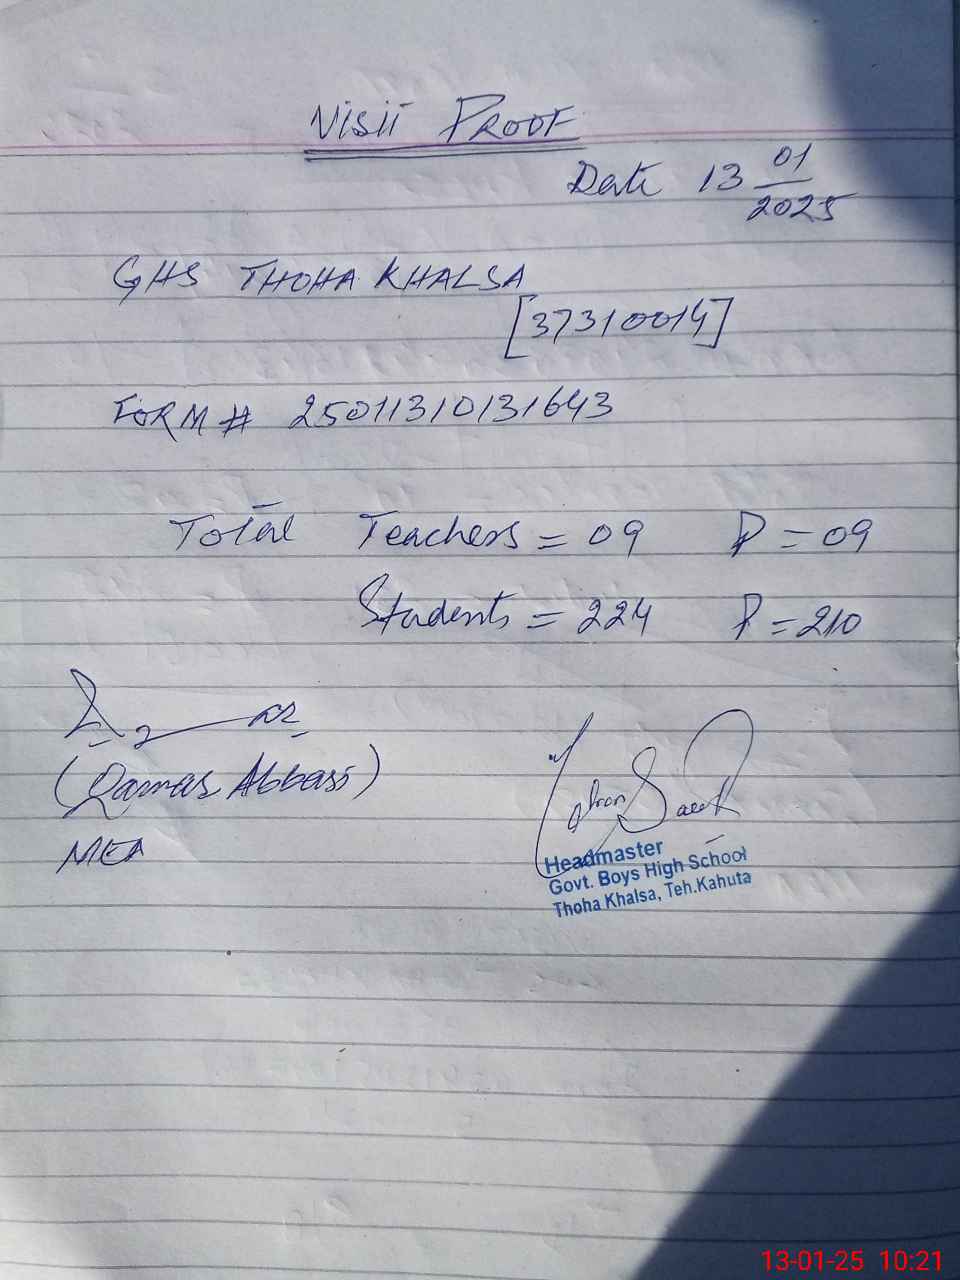 VISIT PROOF
Date 13 01/2025
GHS THOHA KHALSA
[37310014]
FORM # 25011310131643
Total Teachers = 09 P = 09
Students = 224 P = 210
(Qamar Abbasi)
MEA
Headmaster
Govt. Boys High School
Thoha Khalsa, Teh.Kahuta
13-01-25 10:21